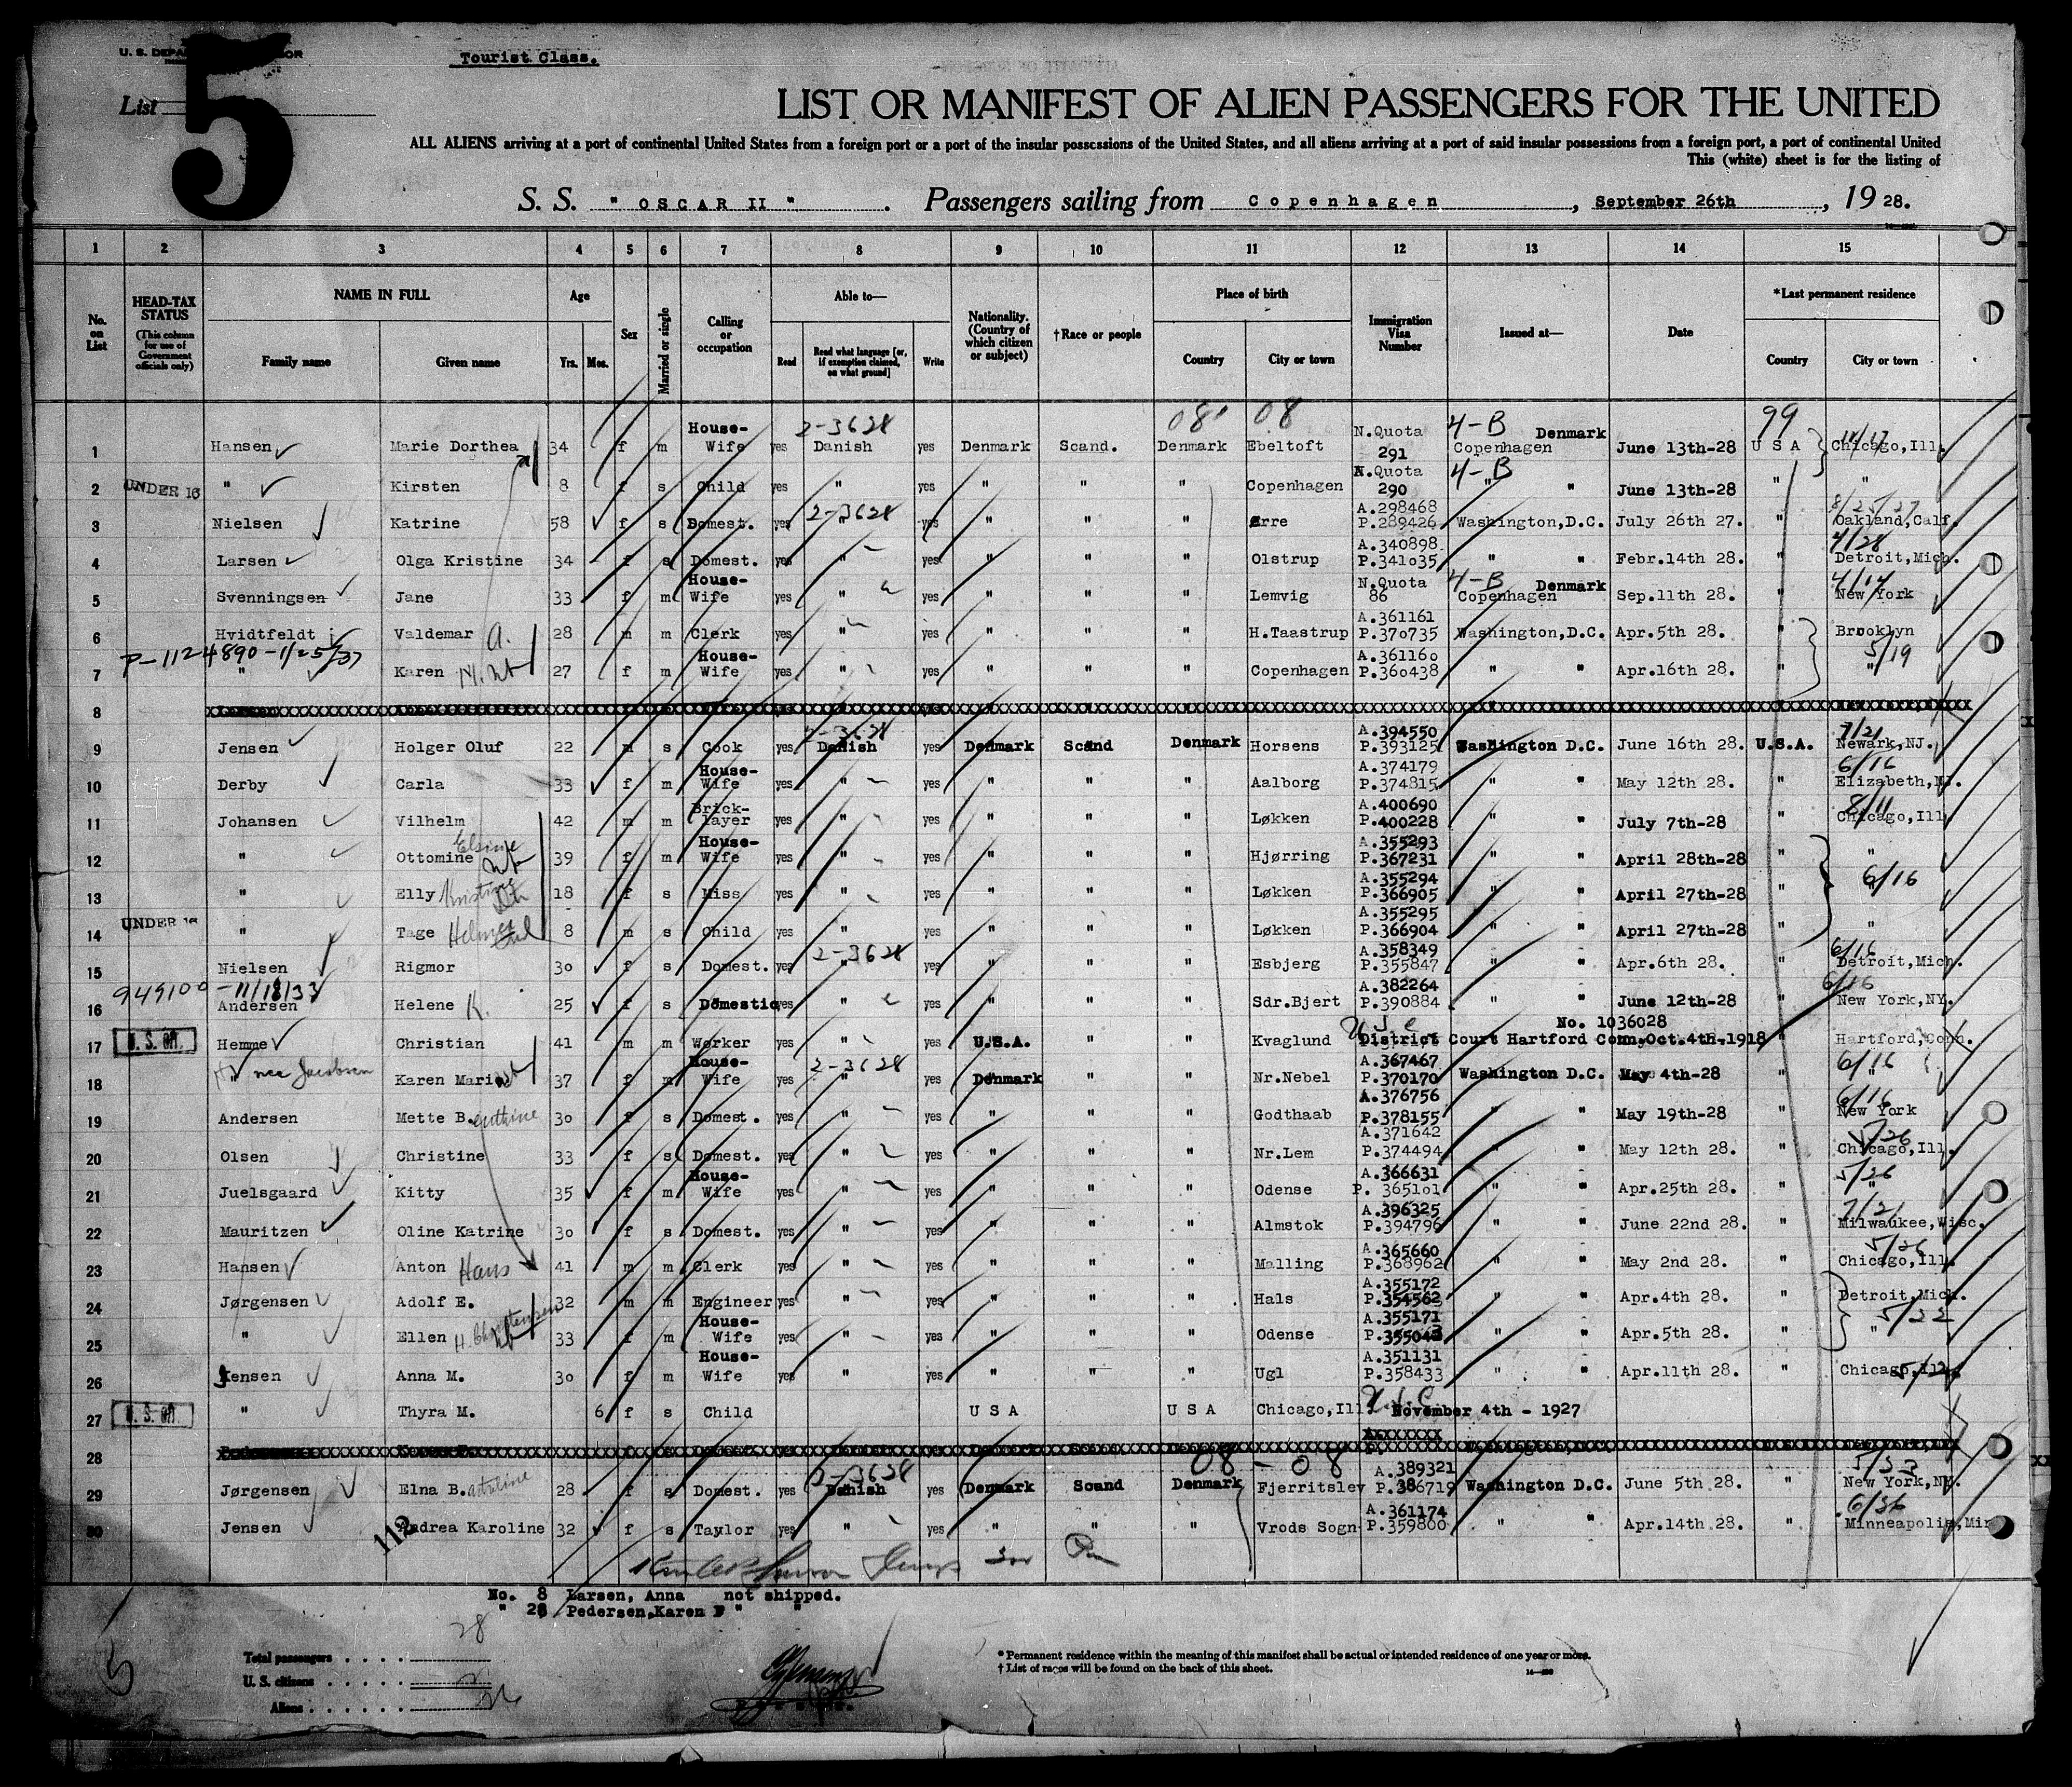 U. S. DEPA OR
Tourist Class.
List 5
LIST OR MANIFEST OF ALIEN PASSENGERS FOR THE UNITED
ALL ALIENS arriving at a port of continental United States from a foreign port or a port of the insular possessions of the United States, and all aliens arriving at a port of said insular possessions from a foreign port, a port of continental United
This (white) sheet is for the listing of
S. S. " OSCAR II " . Passengers sailing from Copenhagen , September 26th , 19 28.
1 2 3 4 5 6 7 8 9 10 11 12 13 14 15
No. on List HEAD-TAX STATUS (This column for use of Government officials only) NAME IN FULL Family name Given name Age Yrs. Mos. Sex Married or single Calling or occupation Able to— Read Read what language [or, if exemption claimed, on what ground] Write Nationality. (Country of which citizen or subject) †Race or people Place of birth Country City or town Immigration Visa Number Issued at— Date *Last permanent residence Country City or town
2-3628 08 08 4-B 99
1 Hansen Marie Dorthea 34 f m House-Wife Danish yes Denmark Scand. Denmark Ebeltoft N.Quota 291 Copenhagen Denmark June 13th-28 U S A Chicago,Ill.
2 UNDER 16 " Kirsten 8 f s Child yes " yes " " " Copenhagen N.Quota 290 4-B " " June 13th-28 " "
3 Nielsen Katrine 58 f s Domest. yes 2-3628 " yes " " " Ærre A.298468 P.289426 Washington,D.C. July 26th 27. " 8/25/27 Oakland,Calf.
4 Larsen Olga Kristine 34 f s Domest. yes " yes " " " Olstrup A.340898 P.341035 " " Febr.14th 28. " 4/28 Detroit,Mich.
5 Svenningsen Jane 33 f m House-Wife yes " yes " " " Lemvig N.Quota 86 4-B Copenhagen Denmark Sep.11th 28. " 4/14 New York
6 Hvidtfeldt Valdemar A. 28 m m Clerk yes " yes " " " H.Taastrup A.361161 P.370735 Washington,D.C. Apr.5th 28. " Brooklyn
P-1124890-1/25/37
7 " Karen 27 f m House-Wife yes " yes " " " Copenhagen A.361160 P.360438 " " Apr.16th 28. " 5/19 "
8
9 Jensen Holger Oluf 22 m s Cook yes 2-3628 Danish yes Denmark Scand Denmark Horsens A.394550 P.393125 Washington D.C. June 16th 28. U.S.A. 7/21 Newark,NJ.
10 Derby Carla 33 f m House-Wife yes " yes " " " Aalborg A.374179 P.374815 " " May 12th 28. " 6/16 Elizabeth,NJ.
11 Johansen Vilhelm 42 m m Brick-layer yes " yes " " " Løkken A.400690 P.400228 " " July 7th-28 " 8/11 Chicago,Ill.
12 " Ottomine Elsine 39 f m House-Wife yes " yes " " " Hjørring A.355293 P.367231 " " April 28th-28 " "
13 " Elly Kristine 18 f s Miss yes " yes " " " Løkken A.355294 P.366905 " " April 27th-28 " 6/16
14 UNDER 16 " Tage 8 m s Child yes " yes " " " Løkken A.355295 P.366904 " " April 27th-28 "
15 Nielsen Rigmor 30 f s Domest. yes 2-3628 " yes " " " Esbjerg A.358349 P.355847 " " Apr.6th 28. " 6/16 Detroit,Mich.
949100 -11/18/33
16 Andersen Helene K. 25 f s Domestic yes " yes " " " Sdr.Bjert A.382264 P.390884 " " June 12th-28 " 6/16 New York,NY.
17 Hemme Christian 41 m m Worker yes " yes U.S.A. " " Kvaglund No. 1036028 District Court Hartford Conn.Oct.4th-1918 " Hartford,Conn.
18 " nee Jacobsen Karen Marie 37 f m House-Wife yes 2-3628 " yes Denmark " " Nr.Nebel A.367467 P.370170 Washington D.C. May 4th-28 " 6/16 "
19 Andersen Mette B. 30 f s Domest. yes " yes " " " Godthaab A.376756 P.378155 " " May 19th-28 " 6/16 New York
20 Olsen Christine 33 f s Domest. yes " yes " " " Nr.Lem A.371642 P.374494 " " May 12th 28. " 5/26 Chicago,Ill.
21 Juelsgaard Kitty 35 f m House-Wife yes " yes " " " Odense A.366631 P. 365101 " " Apr.25th 28. " 5/26 "
22 Mauritzen Oline Katrine 30 f s Domest. yes " yes " " " Almstok A.396325 P.394796 " " June 22nd 28. " 7/21 Milwaukee,Wisc.
23 Hansen Anton Hans 41 m m Clerk yes " yes " " " Malling A.365660 P.368962 " " May 2nd 28. " 5/26 Chicago,Ill.
24 Jørgensen Adolf E. 32 m m Engineer yes " yes " " " Hals A.355172 P.354562 " " Apr.4th 28. " Detroit,Mich.
25 " Ellen 33 f m House-Wife yes " yes " " " Odense A.355171 P.355043 " " Apr.5th 28. " 5/22 "
26 Jensen Anna M. 30 f m House-Wife yes " yes " " " Ugl A.351131 P.358433 " " Apr.11th 28. " Chicago,Ill.
27 " Thyra M. 6 f s Child U S A U S A Chicago,Ill. November 4th - 1927
28
08 - 08
29 Jørgensen Elna B. 28 f s Domest. yes 2-3628 Danish yes Denmark Scand Denmark Fjerritslev A.389321 P.386719 Washington D.C. June 5th 28. " New York,NY.
30 Jensen Andrea Karoline 32 f s Taylor yes " yes " " " Vrods Sogn A.361174 P.359800 " " Apr.14th 28. " Minneapolis,Min
112
No. 8 Larsen, Anna not shipped.
" 28 Pedersen,Karen F " "
28
Total passengers . . . .
U. S. citizens . . . . .
Aliens . . . . . .
* Permanent residence within the meaning of this manifest shall be actual or intended residence of one year or more.
† List of races will be found on the back of this sheet.